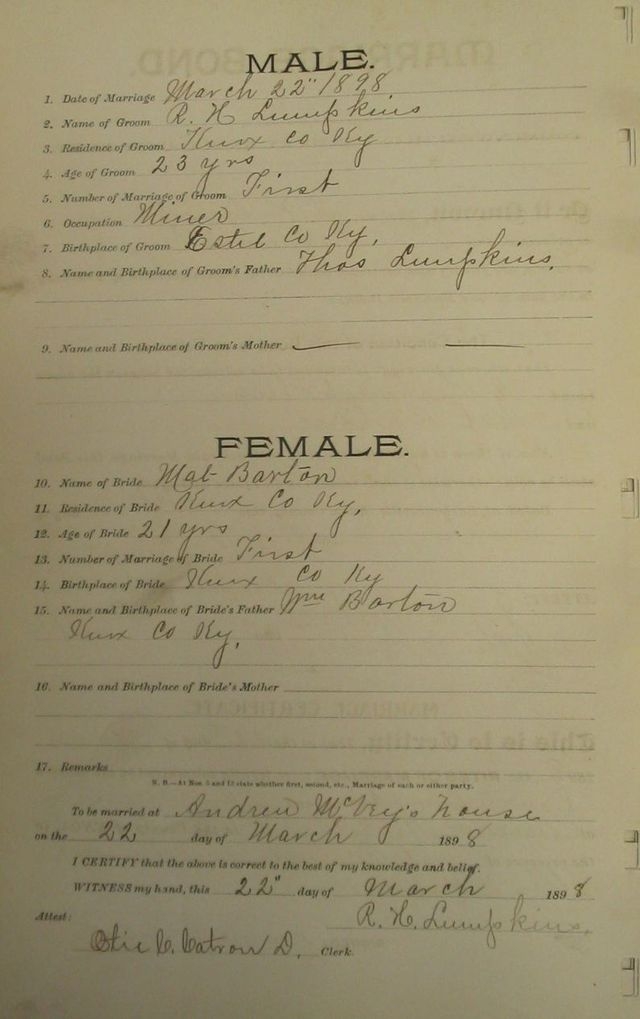 MALE.
1. Date of Marriage March 22" 1898
2. Name of Groom R. H Lumpkins
3. Residence of Groom Knox Co Ky
4. Age of Groom 23 yrs
5. Number of Marriage of Groom First
6. Occupation Miner
7. Birthplace of Groom Estel Co Ky,
8. Name and Birthplace of Groom's Father Thos Lumpkins,
9. Name and Birthplace of Groom's Mother
FEMALE.
10. Name of Bride Mat Barton
11. Residence of Bride Knox Co Ky,
12. Age of Bride 21 yrs
13. Number of Marriage of Bride First
14. Birthplace of Bride Knox Co Ky
15. Name and Birthplace of Bride's Father Wm Barton
Knox Co Ky,
16. Name and Birthplace of Bride's Mother
17. Remarks
N. B.—At Nos. 5 and 13 state whether first, second, etc., Marriage of each or either party.
To be married at Andrew McVey's house
on the 22 day of March 1898
I CERTIFY that the above is correct to the best of my knowledge and belief.
WITNESS my hand, this 22" day of March 1898
R. H. Lumpkins.
Attest:
C. Catron D. Clerk.